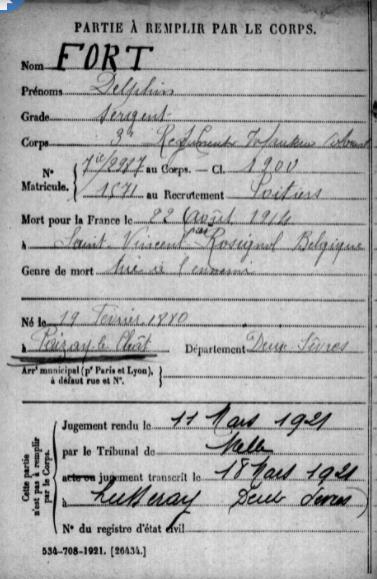 PARTIE À REMPLIR PAR LE CORPS.
Nom FORT
Prénoms Delphin
Grade Sergent
Corps 3e Régiment Infanterie Coloniale
N° Matricule. { 7ie/2987 au Corps. — Cl. 1900
1571 au Recrutement Poitiers
Mort pour la France le 22 Août 1914
à Saint-Vincent Rosignol Belgique
Genre de mort Tué à l'ennemi
Né le 19 Février 1880
à Paizay-le-Chat Département Deux Sèvres
Arrt municipal (pr Paris et Lyon), à défaut rue et N°. }
Cette partie n'est pas à remplir par le Corps.
Jugement rendu le 11 Mars 1921
par le Tribunal de Melle
acte ou jugement transcrit le 18 Mars 1921
à Lusseray Deux Sèvres
N° du registre d'état civil
534-708-1921. [26434.]